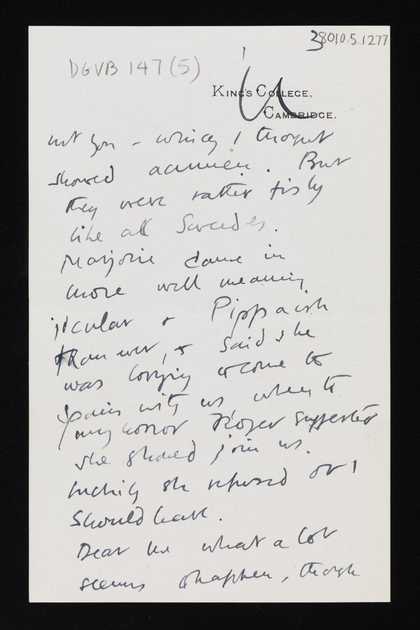 38010.5.1277
DGVB 147 (5)
King's College,
Cambridge.
not you – which I thought
showed acumen. But
they were rather fishy
like all Swedes.
Marjorie came in
more well meaning
jocular & Pippaish
than ever, & said she
was longing to come to
Spain with us when to
my horror Roger suggested
she should join us.
luckily she refused or I
should have.
Dear me what a lot
seems to happen, though